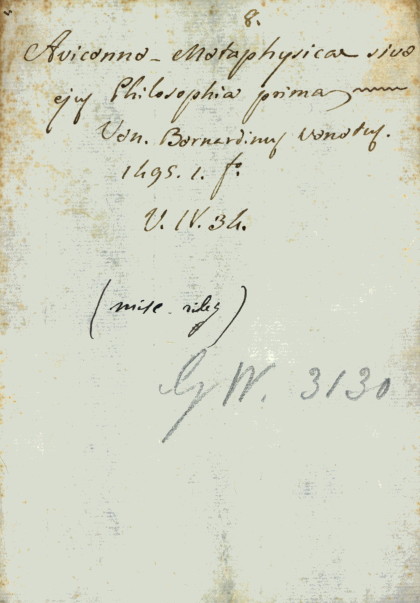 8.
Avicenna - Metaphysicae sive
ejus Philosophia prima
Ven. Bernardinus Venetus.
1495. 1. fo.
V. IV. 34.
(mise.
GW. 3130